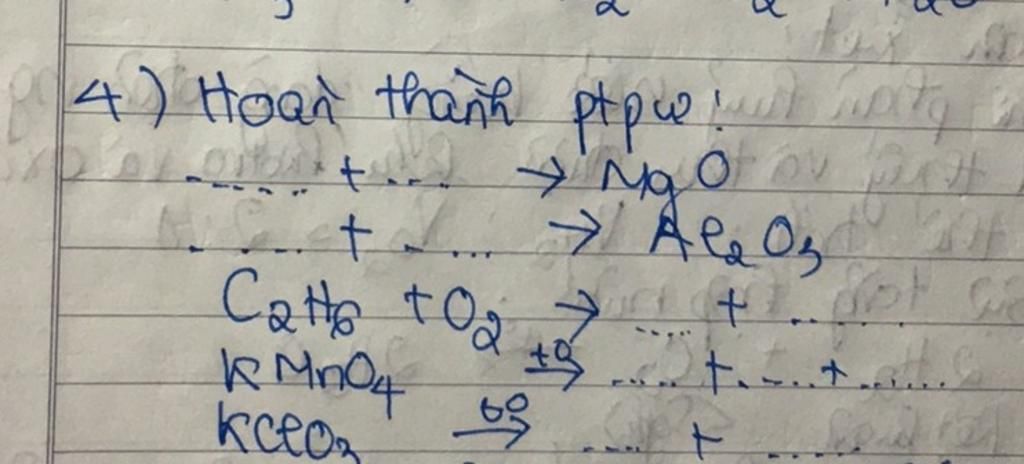 4) Hoàn thành ptpư:
...... + .... → MgO
.... + .... → Al₂O₃
C₂H₆ + O₂ → ..... + ......
KMnO₄ t⁰→ ..... + ..... + ......
KClO₃ t⁰→ .... + ......